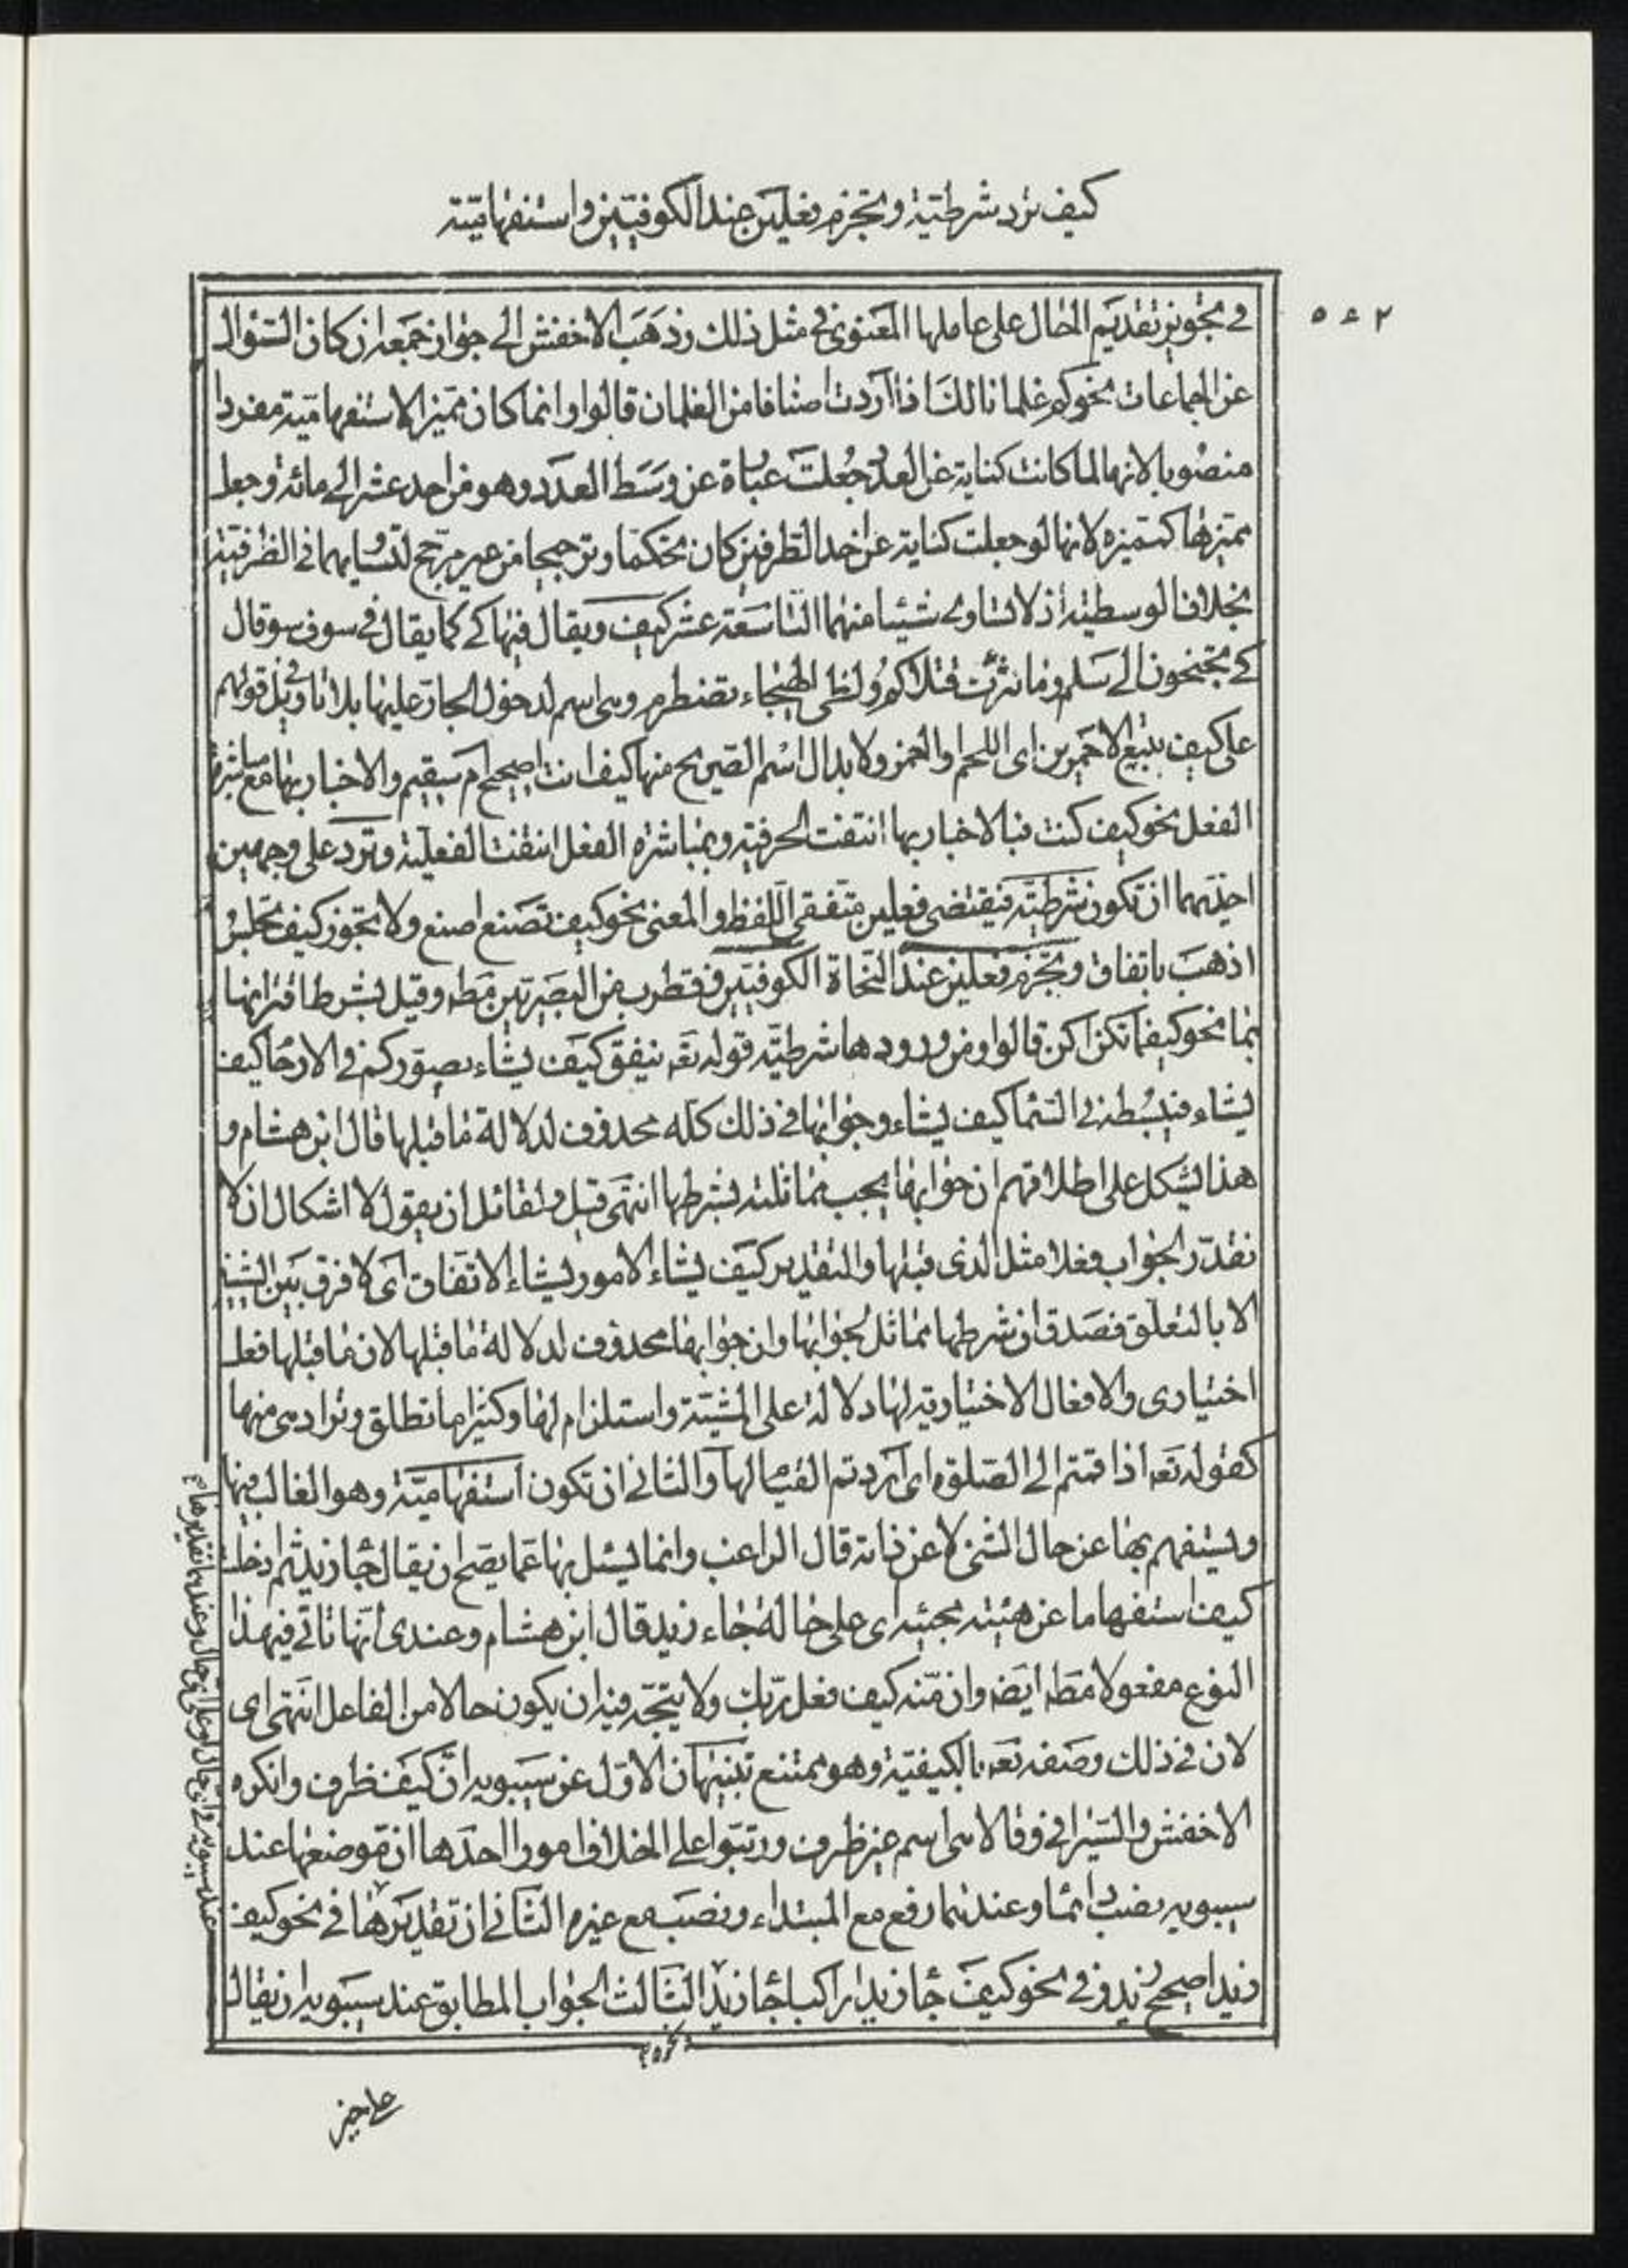 كيف ترد شرطية وتجزم فعلين عند الكوفيين واستفهامية
٥٤٢
في تجويز تقديم الحال على عاملها المعنوي في مثل ذلك وذهب الاخفش الى جواز جمعه ان كان السؤال
عن الجماعات نحو كم غلمانا لك اذا اردت اصنافا من الغلمان قالوا وانما كان مميز الاستفهامية مفردا
منصوبا لانها لما كانت كناية عن العدد جعلت عبارة عن وسط العدد وهو من احد عشر الى مائة وجعل
مميزها كمميزه لانها لو جعلت كناية عن احد الطرفين كان تحكما وترجيحا من غير مرجح لتساويهما في الطرفية
بخلاف الوسطية اذ لا تساوى شيئا منهما التاسعة عشر كيف ويقال فيها كي كما يقال في سوف سو قال
كي تجنحون الى سلم وما ثئرت قتلاكم ولظى الهيجاء تضطرم وهي اسم لدخول الجار عليها بلا تاويل في قولهم
على كيف تبيع الاحمرين اى اللحم والخمر ولابدال اسم الصريح منها كيف انت اصحيح ام سقيم والاخبار بها مع مباشرة
الفعل نحو كيف كنت فبالاخبار بها انتفت الحرفية وبمباشرة الفعل انتفت الفعلية وترد على وجهين
احديهما ان تكون شرطية فيقتضى فعلين متفقى اللفظ والمعنى نحو كيف تصنع اصنع ولا يجوز كيف تجلس
اذهب باتفاق وتجزم فعلين عند النحاة الكوفيين وقطرب من البصريين مطه وقيل بشرط اقترانها
بما نحو كيفما تكن اكن قالوا ومن ورودها شرطية قوله تعه ينفق كيف يشاء يصوركم في الارحام كيف
يشاء فيبسطه في السماء كيف يشاء وجوابها في ذلك كله محذوف لدلالة ما قبلها قال ابن هشام و
هذا يشكل على اطلاقهم ان جوابها يجب مماثلته بشرطها انتهى قيل ولقائل ان يقول لا اشكال ان لا
نقدر الجواب فعلا مثل الذى قبلها والتقدير كيف يشاء الامور يشاء الاتفاق اى لا فرق بين المشيتين
الا بالتعلق فصدق ان شرطها مماثل لجوابها وان جوابها محذوف لدلالة ما قبلها لان ما قبلها فعل
اختيارى والافعال الاختيارية لها دلالة على المشية واستلزام لها وكثيرا ما تطلق وتراد هى منها
كقوله تعه اذا قمتم الى الصلوة اى اردتم القيام لها والثانى ان تكون استفهامية وهو الغالب فيها
ويستفهم بها عن حال الشئ لا عن ذاته قال الراغب وانما يسئل بها عما يصح ان يقال جاء زيد ثم ادخل
كيف استفهاما عن هيئة مجيئه اى على حاله جاء زيد قال ابن هشام وعندى انها تاتى في هذا
النوع مفعولا مطه ايضه وان منه كيف فعل ربك ولا يتجه فيه ان يكون حالا من الفاعل انتهى اى
لان في ذلك وصفه تعه بالكيفية وهو ممتنع تنبيهان الاول عن سيبويه ان كيف ظرف وانكره
الاخفش والسيرافى وقالا هى اسم غير ظرف ورتبوا على الخلاف امورا احدها ان موضعها عند
سيبويه نصب دائما وعندهما رفع مع المبتداء ونصب مع غيره الثانى ان تقديرها في نحو كيف
زيد اصحيح زيد وفي نحو كيف جاء زيد اراكبا جاء زيد الثالث الجواب المطابق عند سيبويه ان يقال
على خير
عند سيبويه في اى حال او على اى حال وعندهما تقديرها